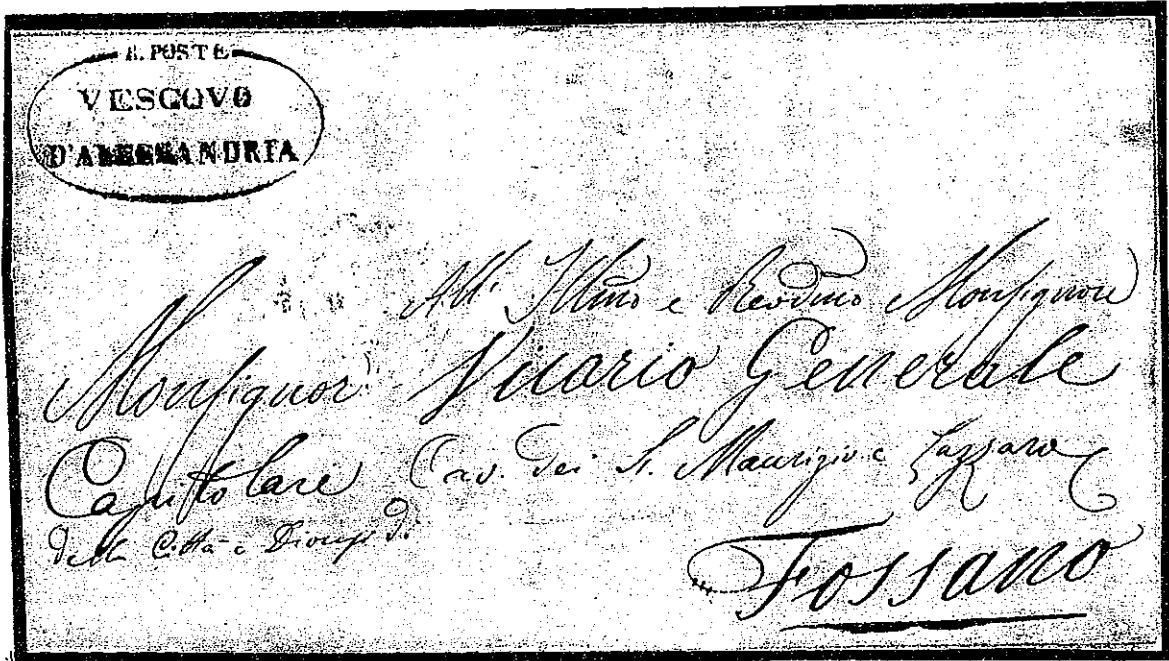 R. POSTE
VESCOVO
D'ALESSANDRIA
All' Illmo e Revdmo Monsignore
Monsignor Vicario Generale
Capitolare Cav. dei S. Maurizio e Lazzaro
della Città e Diocesi di
Fossano